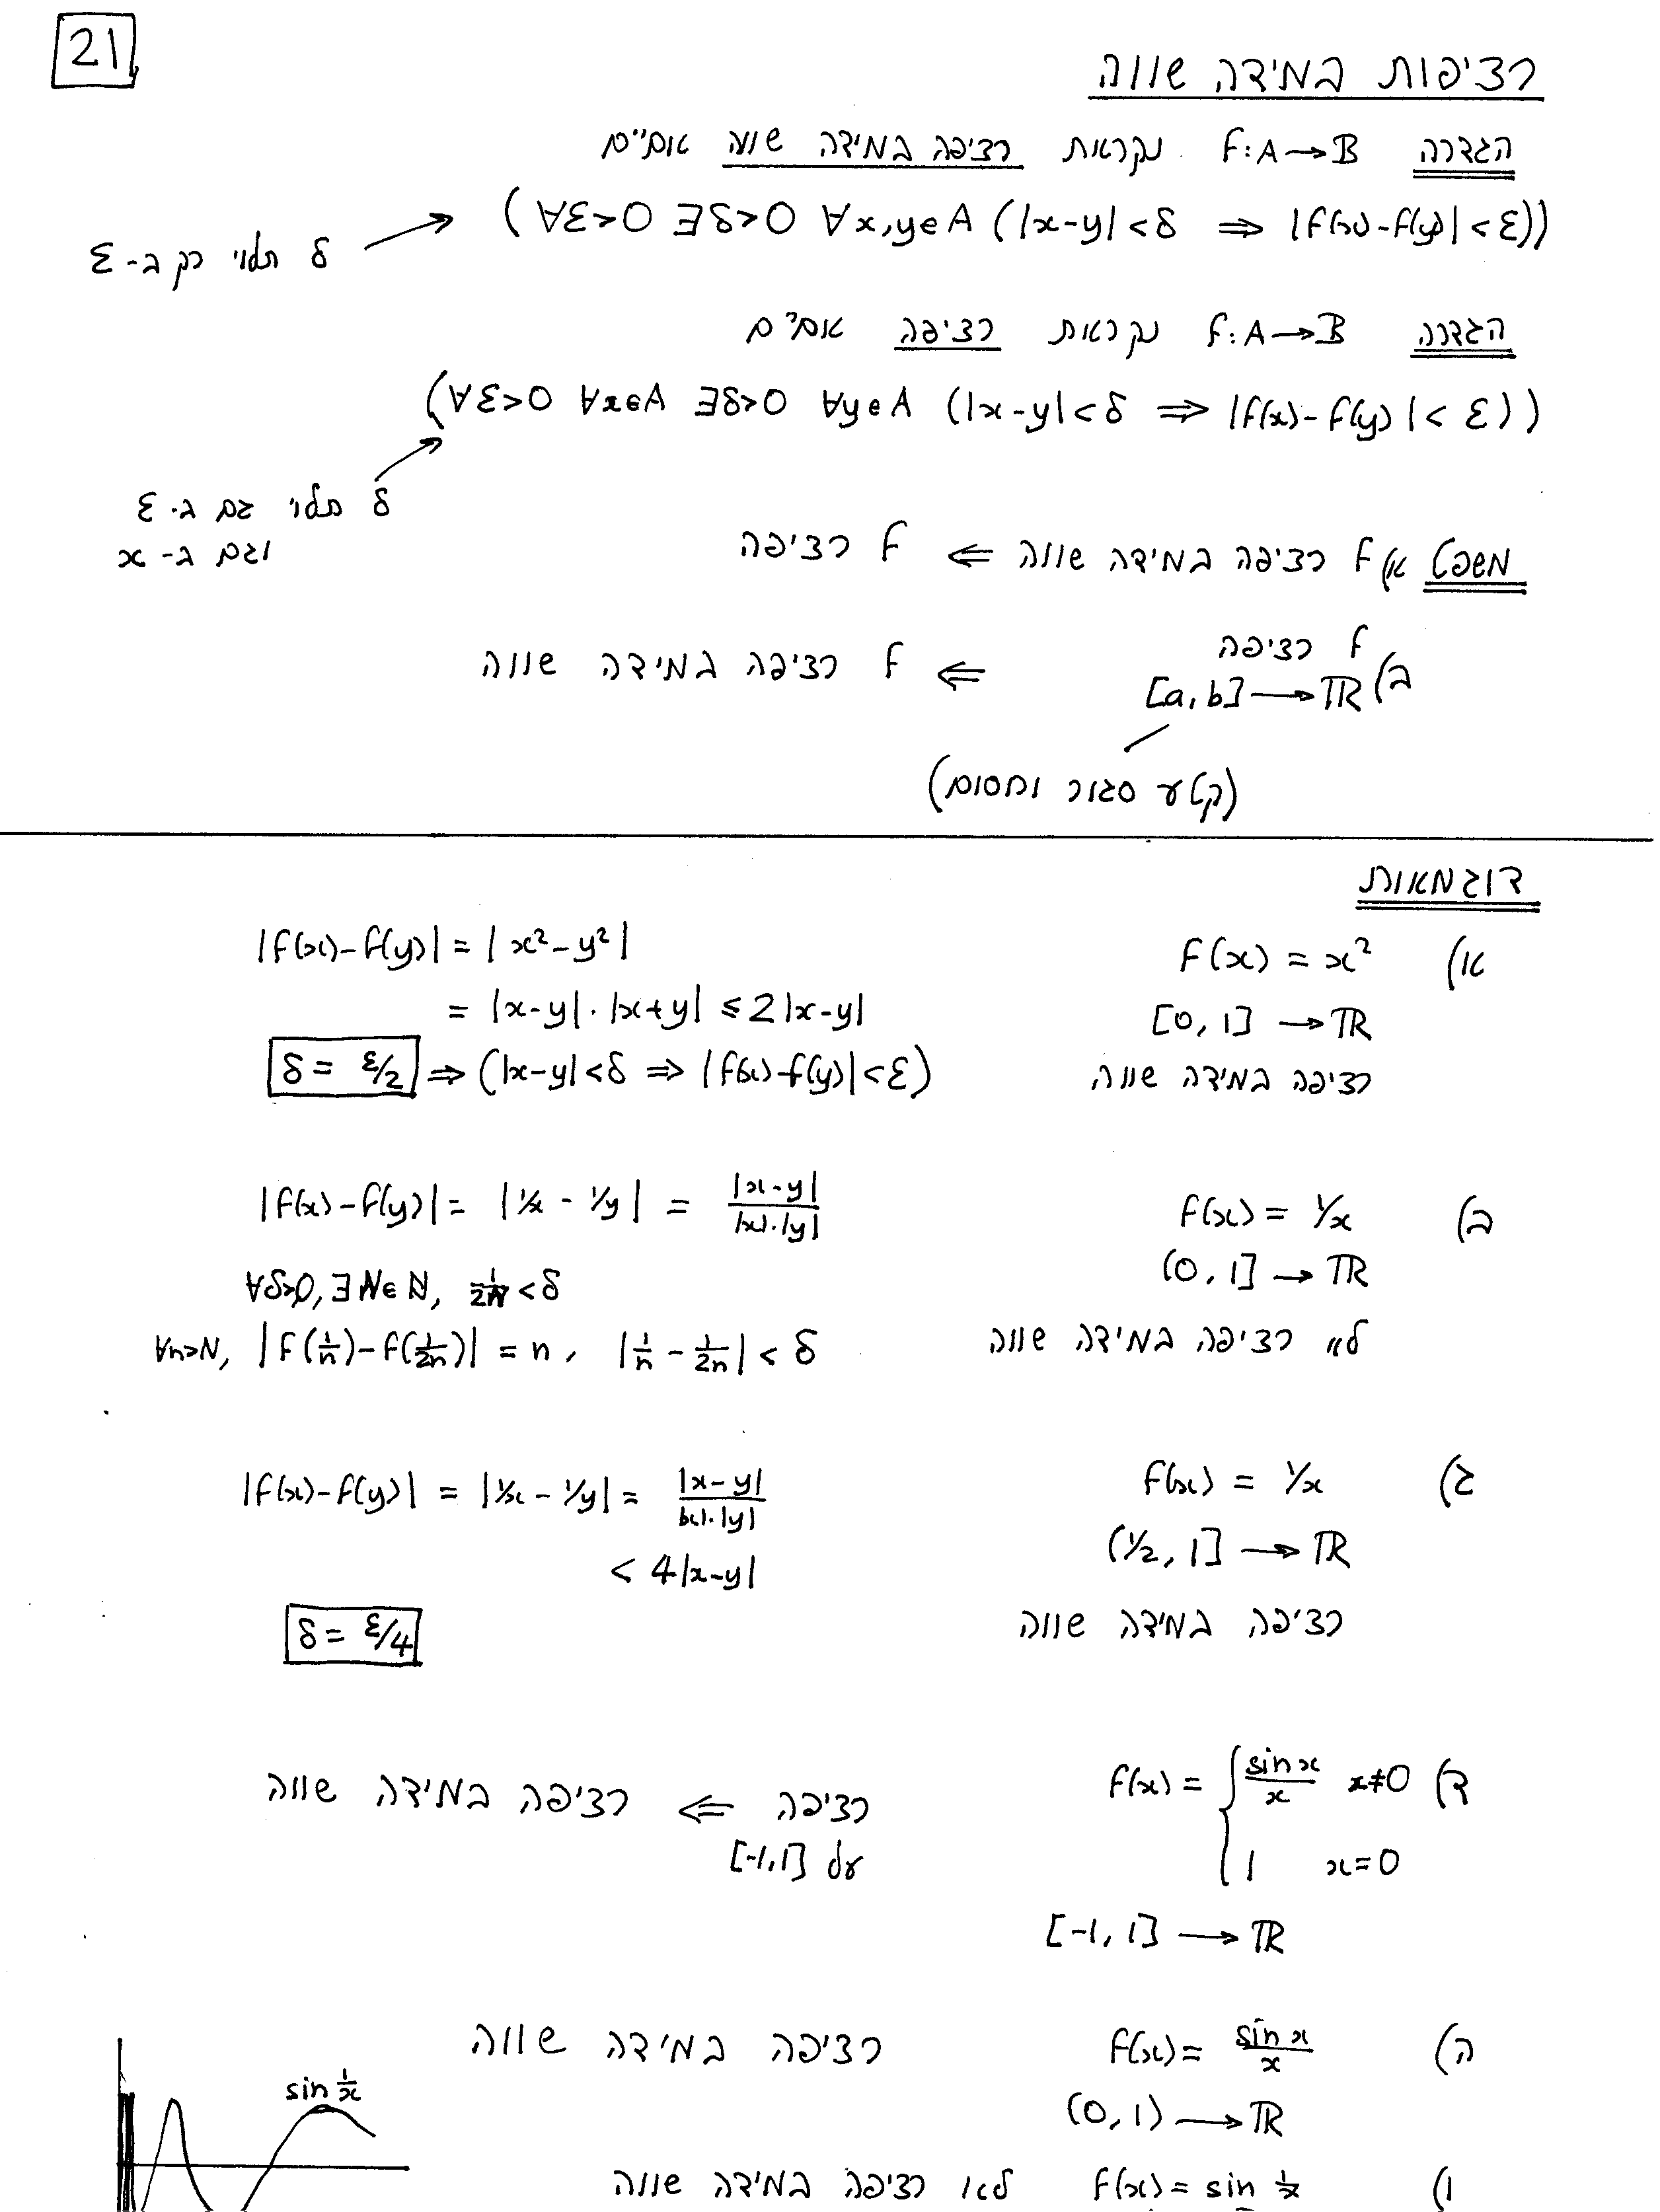 21
רציפות במידה שווה
הגדרה f:A→B נקראת רציפה במידה שווה אםיים
(∀ε>0 ∃δ>0 ∀x,y∈A (|x-y|<δ ⇒ |f(x)-f(y)|<ε))
δ תלוי רק ב-ε
הגדרה f:A→B נקראת רציפה אם״ם
(∀ε>0 ∀x∈A ∃δ>0 ∀y∈A (|x-y|<δ ⇒ |f(x)-f(y)|<ε))
δ תלוי גם ב-ε
וגם ב-x
משפט א) f רציפה במידה שווה ⇐ f רציפה
ב) f רציפה [a,b]→ℝ ⇐ f רציפה במידה שווה
(קטע סגור וחסום)
דוגמאות
א) f(x) = x²
[0,1] → ℝ
רציפה במידה שווה
|f(x)-f(y)| = |x²-y²|
= |x-y|·|x+y| ≤ 2|x-y|
δ = ε/2 ⇒ (|x-y|<δ ⇒ |f(x)-f(y)|<ε)
ב) f(x) = 1/x
(0,1] → ℝ
לא רציפה במידה שווה
|f(x)-f(y)| = |1/x - 1/y| = |x-y|/|x|·|y|
∀δ>0, ∃N∈ℕ, 1/2N < δ
∀n>N, |f(1/n)-f(1/2n)| = n, |1/n - 1/2n| < δ
ג) f(x) = 1/x
(1/2,1] → ℝ
רציפה במידה שווה
|f(x)-f(y)| = |1/x - 1/y| = |x-y|/|x|·|y|
< 4|x-y|
δ = ε/4
ד) f(x) = { sin x/x x≠0
1 x=0
[-1,1] → ℝ
רציפה ⇐ רציפה במידה שווה
על [-1,1]
ה) f(x) = sin x/x
(0,1) → ℝ
רציפה במידה שווה
sin 1/x
ו) f(x) = sin 1/x
לא רציפה במידה שווה